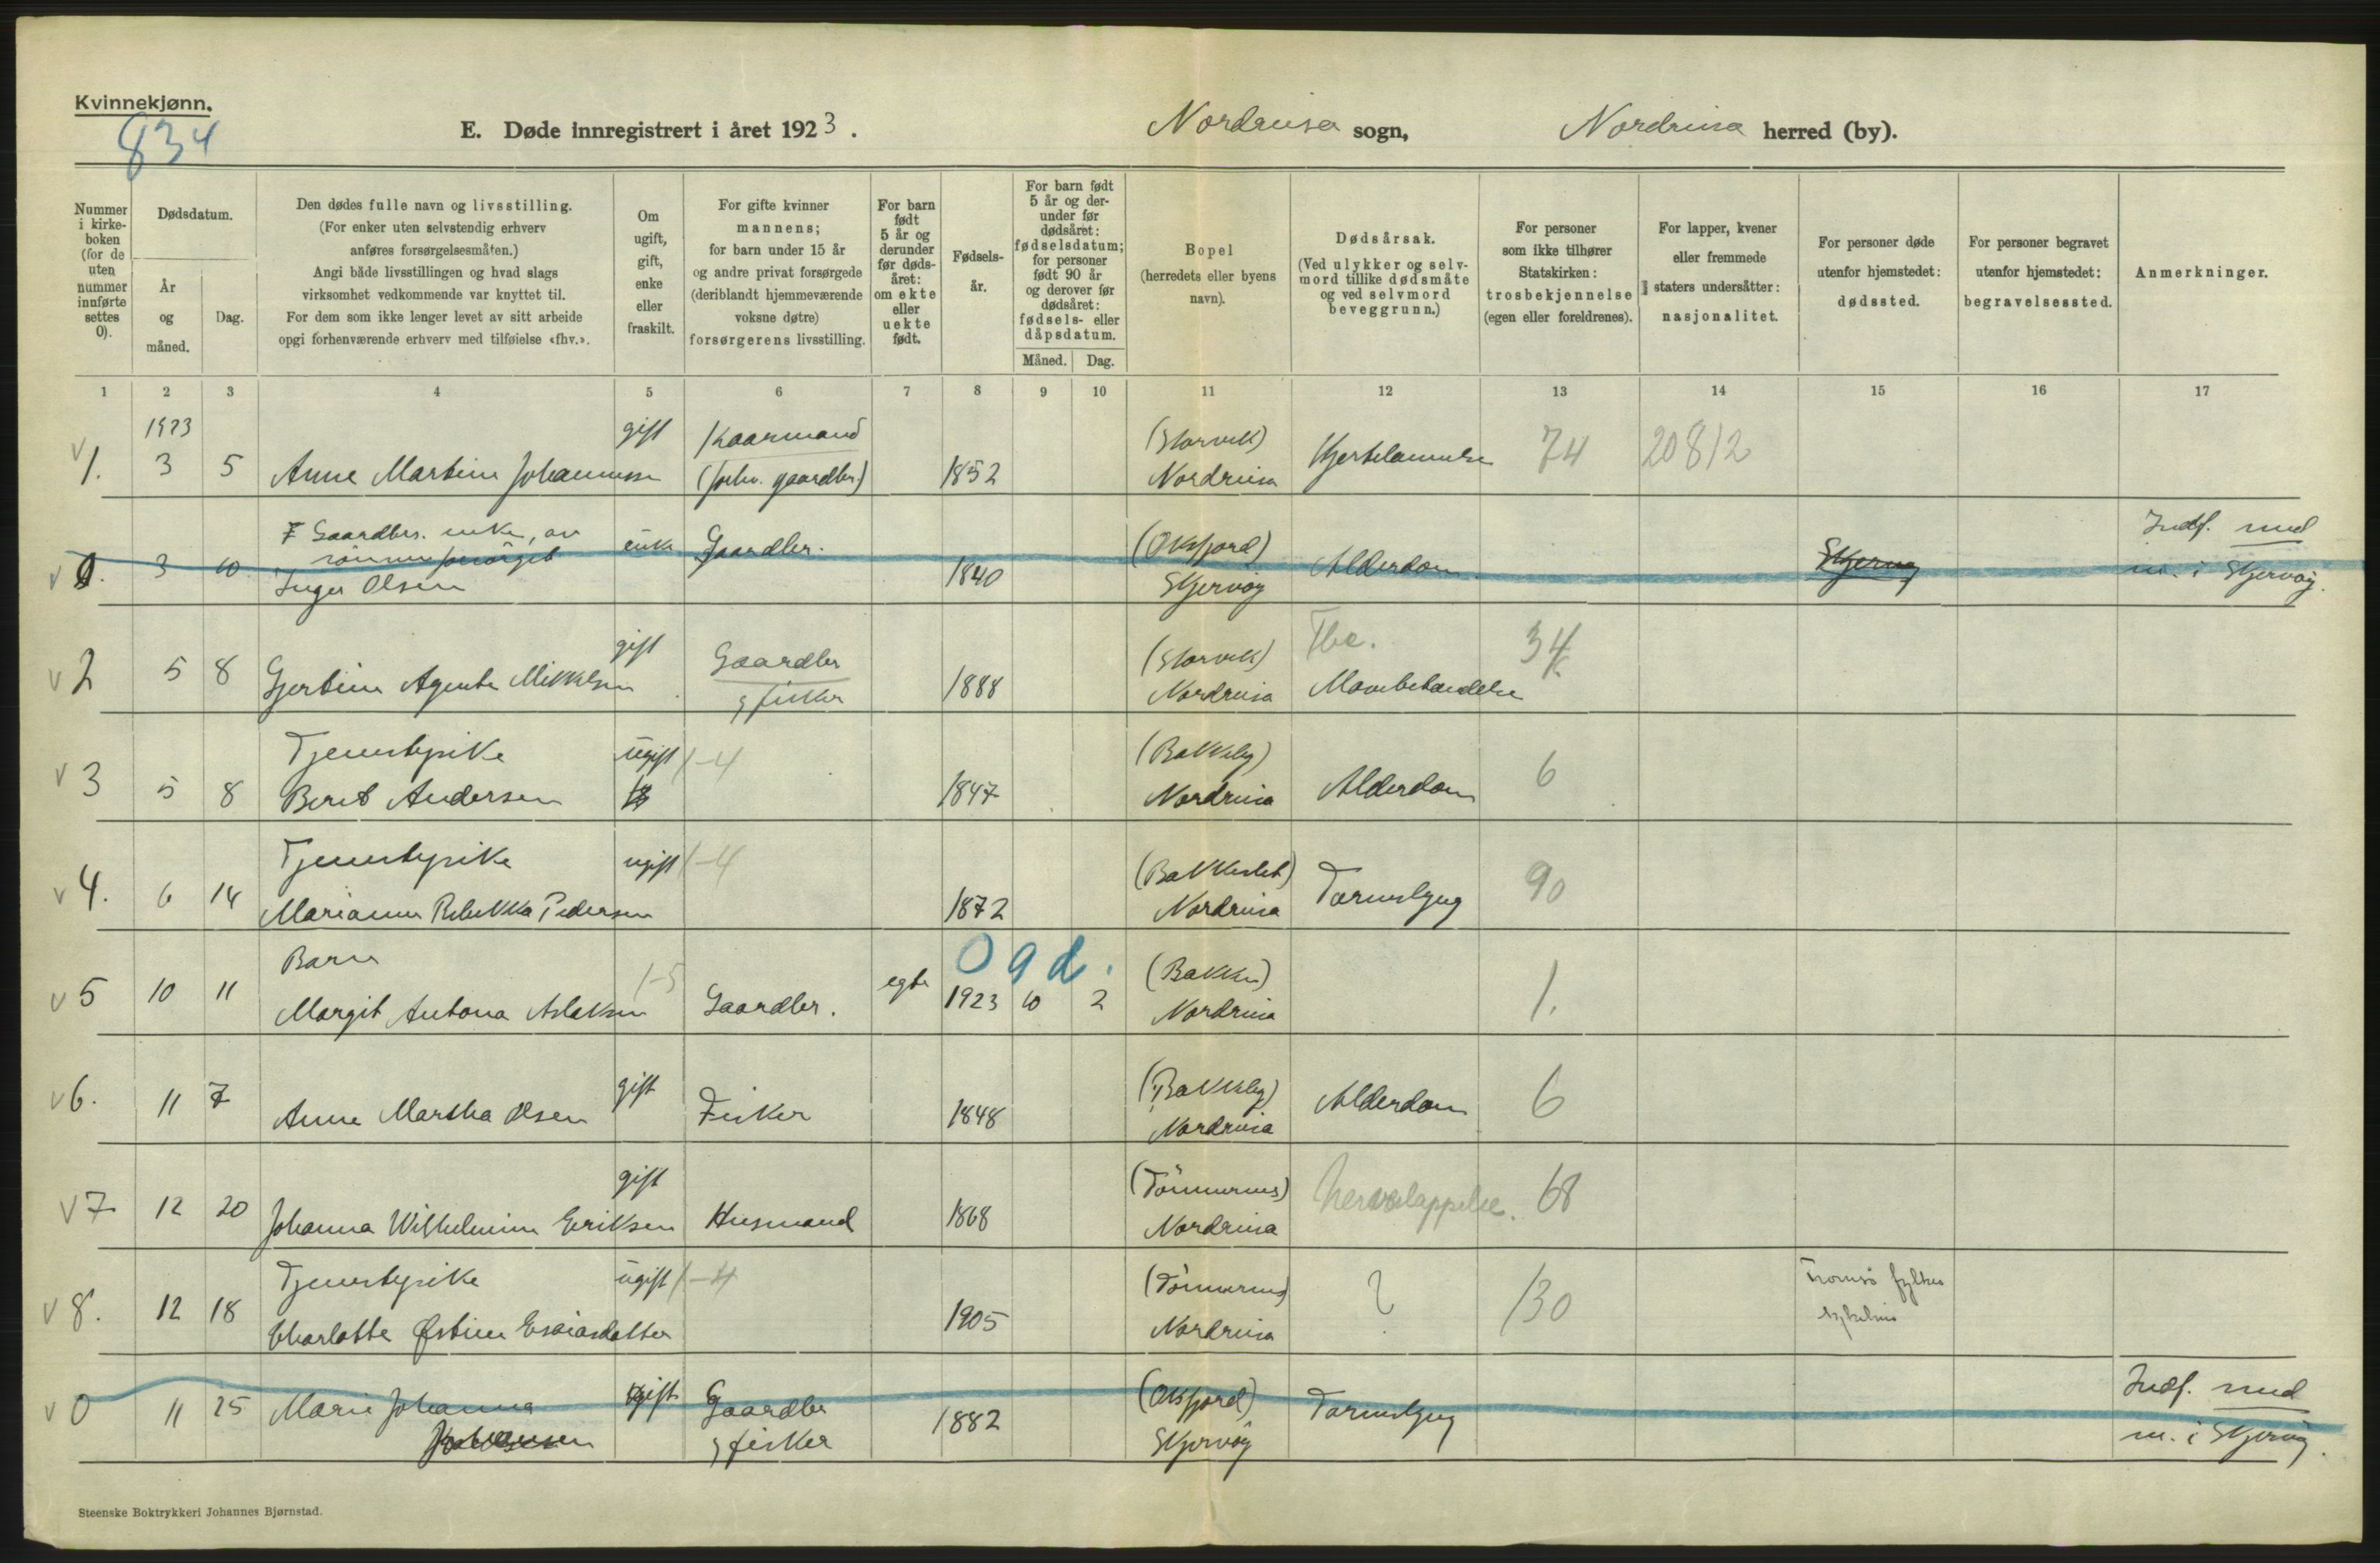 Kvinnekjønn.
834
E. Døde innregistrert i året 1923.
Nordreisa sogn,
Nordreisa herred (by).
Nummer i kirkeboken (for de uten nummer innførte settes 0).
Dødsdatum.
År og måned.
Dag.
Den dødes fulle navn og livsstilling.
(For enker uten selvstendig erhverv
anføres forsørgelsesmåten.)
Angi både livsstillingen og hvad slags
virksomhet vedkommende var knyttet til.
For dem som ikke lenger levet av sitt arbeide
opgi forhenværende erhverv med tilføielse «fhv.».
Om ugift, gift, enke eller fraskilt.
For gifte kvinner
mannens;
for barn under 15 år
og andre privat forsørgede
(deriblandt hjemmeværende
voksne døtre)
forsørgerens livsstilling.
For barn født 5 år og derunder før dødsåret: om ekte eller uekte født.
Fødselsår.
For barn født 5 år og derunder før dødsåret: fødselsdatum; for personer født 90 år og derover før dødsåret: fødsels- eller dåpsdatum.
Måned. Dag.
Bopel
(herredets eller byens
navn).
Dødsårsak.
(Ved ulykker og selvmord tillike dødsmåte og ved selvmord beveggrunn.)
For personer
som ikke tilhører
Statskirken:
trosbekjennelse
(egen eller foreldrenes).
For lapper, kvener
eller fremmede
staters undersåtter:
nasjonalitet.
For personer døde
utenfor hjemstedet:
dødssted.
For personer begravet
utenfor hjemstedet:
begravelsessted.
Anmerkninger.
1 2 3 4 5 6 7 8 9 10 11 12 13 14 15 16 17
1923 gift Kaarmand (Storvik)
v 1. 3 5 Anne Martine Johannessen (forhv. gaardbr.) 1852 Nordreisa Hjertelammelse 74 20812
Gaardbrs. enke, av enke Gaardbr. (Oksfjord) Indf. med
sønnen forsørget
v 0. 3 10 Inger Olsen 1840 Skjervøy Alderdom Skjervøy m. i Skjervøy.
gift Gaardbr (Storvik) Tbc. 34
v 2 5 8 Gjertine Agente Mikkelsen & fisker 1888 Nordreisa Mavebetændelse
Tjenestepike ugift 1-4 (Bakkeby)
v 3 5 8 Beret Andersen 1847 Nordreisa Alderdom 6
Tjenestepike ugift 1-4 (Bakkeslet)
v 4. 6 14 Marianne Rebekka Pedersen 1872 Nordreisa Tarmslyng 90
Barn 1-5 egte 0 9 d. (Bakken)
v 5 10 11 Margit Antona Aslaksen Gaardbr. 1923 10 2 Nordreisa 1.
gift (Bakkeby)
v 6. 11 7 Anne Martha Olsen Fisker 1848 Nordreisa Alderdom 6
gift (Sørkjosen)
v 7 12 20 Johanna Wilhelmine Eriksen Husmand 1868 Nordreisa 68
Tjenestepike ugift 1-4 Tromsø fylkes
v 8. 12 18 Charlotte Østine Esaiasdatter 1905 Nordreisa ? 130 sykehus
v 0 11 25 Marie Johanna gift Gaardbr (Oksfjord) Tarmslyng Indf. med
Johansen & fisker 1882 Skjervøy m. i Skjervøy.
Steenske Boktrykkeri Johannes Bjørnstad.